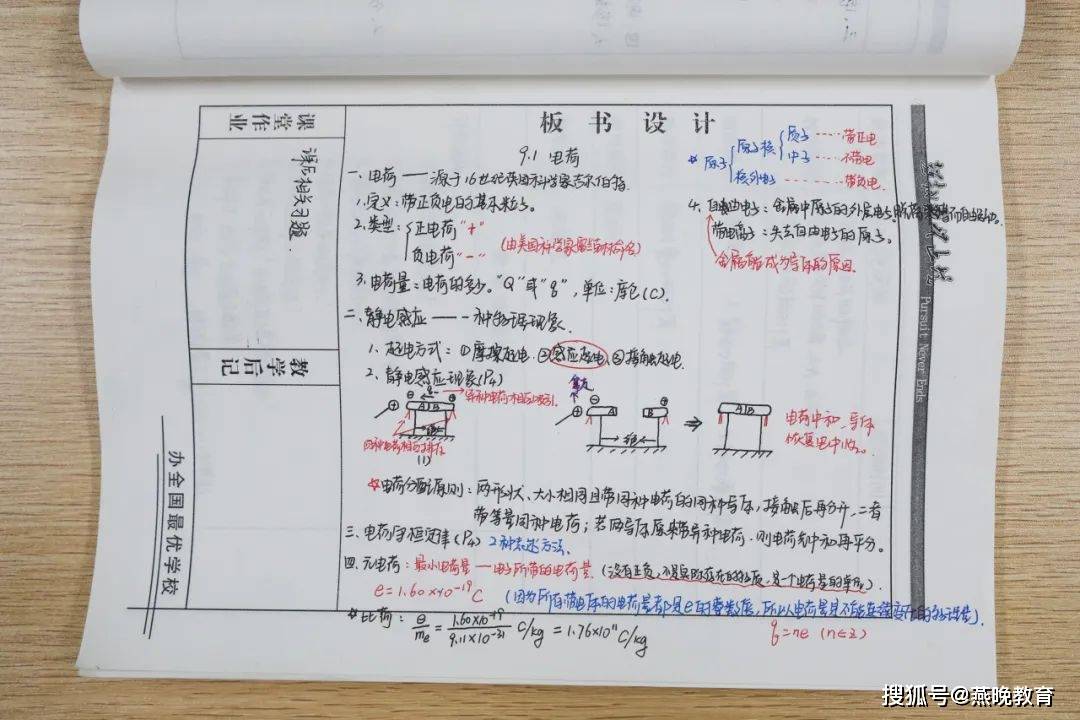 板书设计
课堂作业
课后相关习题
教学后记
办全国最优学校
Pursuit Never Ends
9.1 电荷
一、电荷——源于16世纪英国科学家吉尔伯特.
1.定义:带正负电的基本粒子。
2.类型:
正电荷"+"
负电荷"-"
(由美国科学家富兰克林命名)
3.电荷量:电荷的多少。"Q"或"q",单位:库仑(C).
☆ 原子
原子核
质子……带正电
中子……不带电
核外电子……带负电
4.自由电子:金属中原子的外层电子
带电离子:失去自由电子的原子。
金属能成为导体的原因.
二、静电感应——一种物理现象.
1.起电方式:①摩擦起电、②感应起电、③接触起电.
2.静电感应现象(P4)
异种电荷相互吸引.
同种电荷相互排斥
A B
(1)
A
B
⇒
A B
电荷中和,导体恢复电中性。
☆电荷分配原则:两形状、大小相同且带同种电荷的同种导体,接触后再分开,二者
带等量同种电荷;若两导体原来带异种电荷,则电荷先中和再平分。
三、电荷守恒定律(P4) 2种表述方法.
四、元电荷:最小电荷量——电子所带的电荷量.(没有正负,不是实际存在的物质,是一个电荷量的单位).
e=1.60×10⁻¹⁹C
(因为所有带电体的电荷量都是e的整数倍,所以电荷量是不能连续变化的物理量).
q=ne (n∈Z)
☆比荷:e/mₑ = 1.60×10⁻¹⁹/9.11×10⁻³¹ C/kg = 1.76×10¹¹ C/kg
搜狐号@燕晚教育